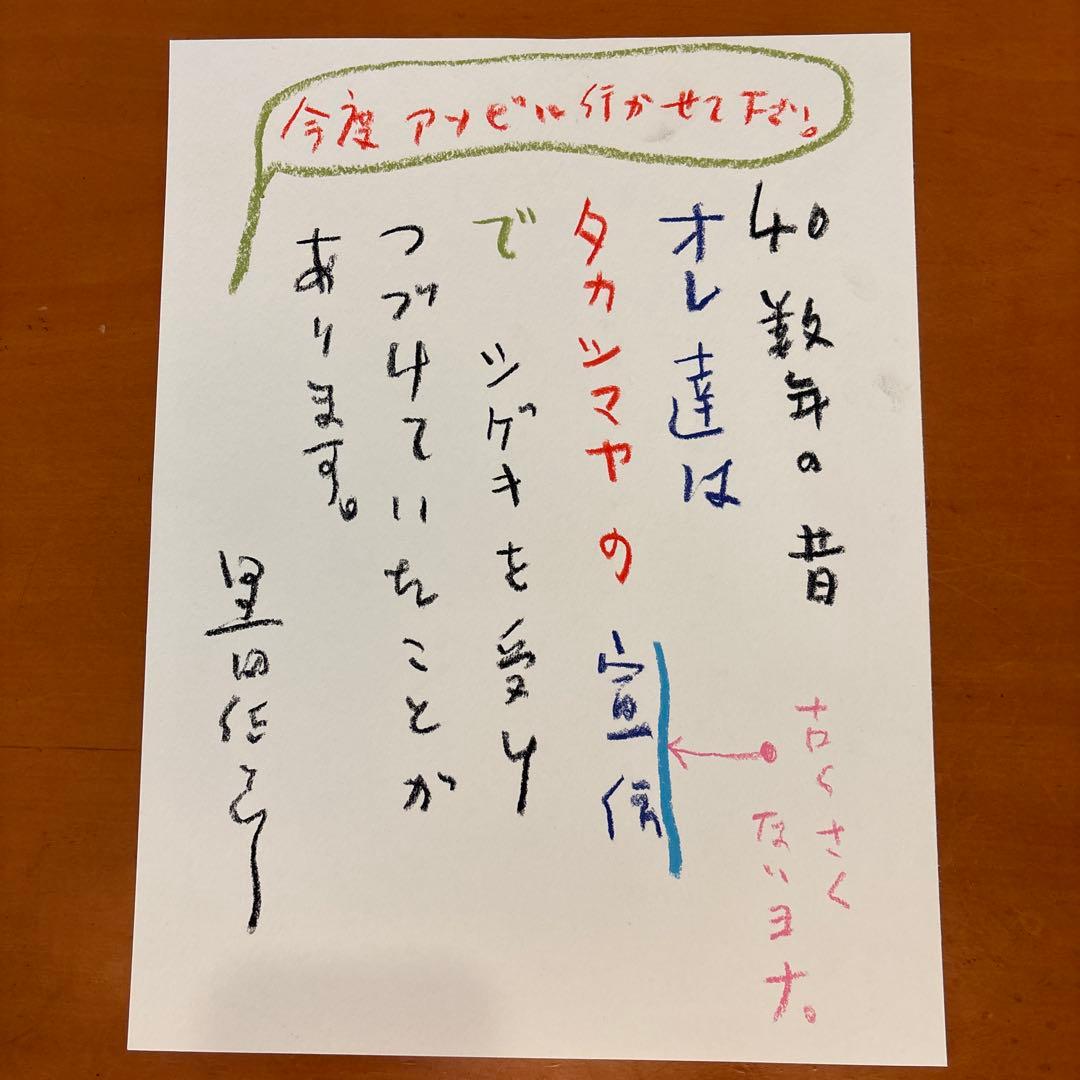 今度アンビル行かせて下さい。
40数年の昔
オレ達は
タカシマヤの宣伝
でシゲキを受け
つづけていたことが
あります。
古くさく
ないヨナ。